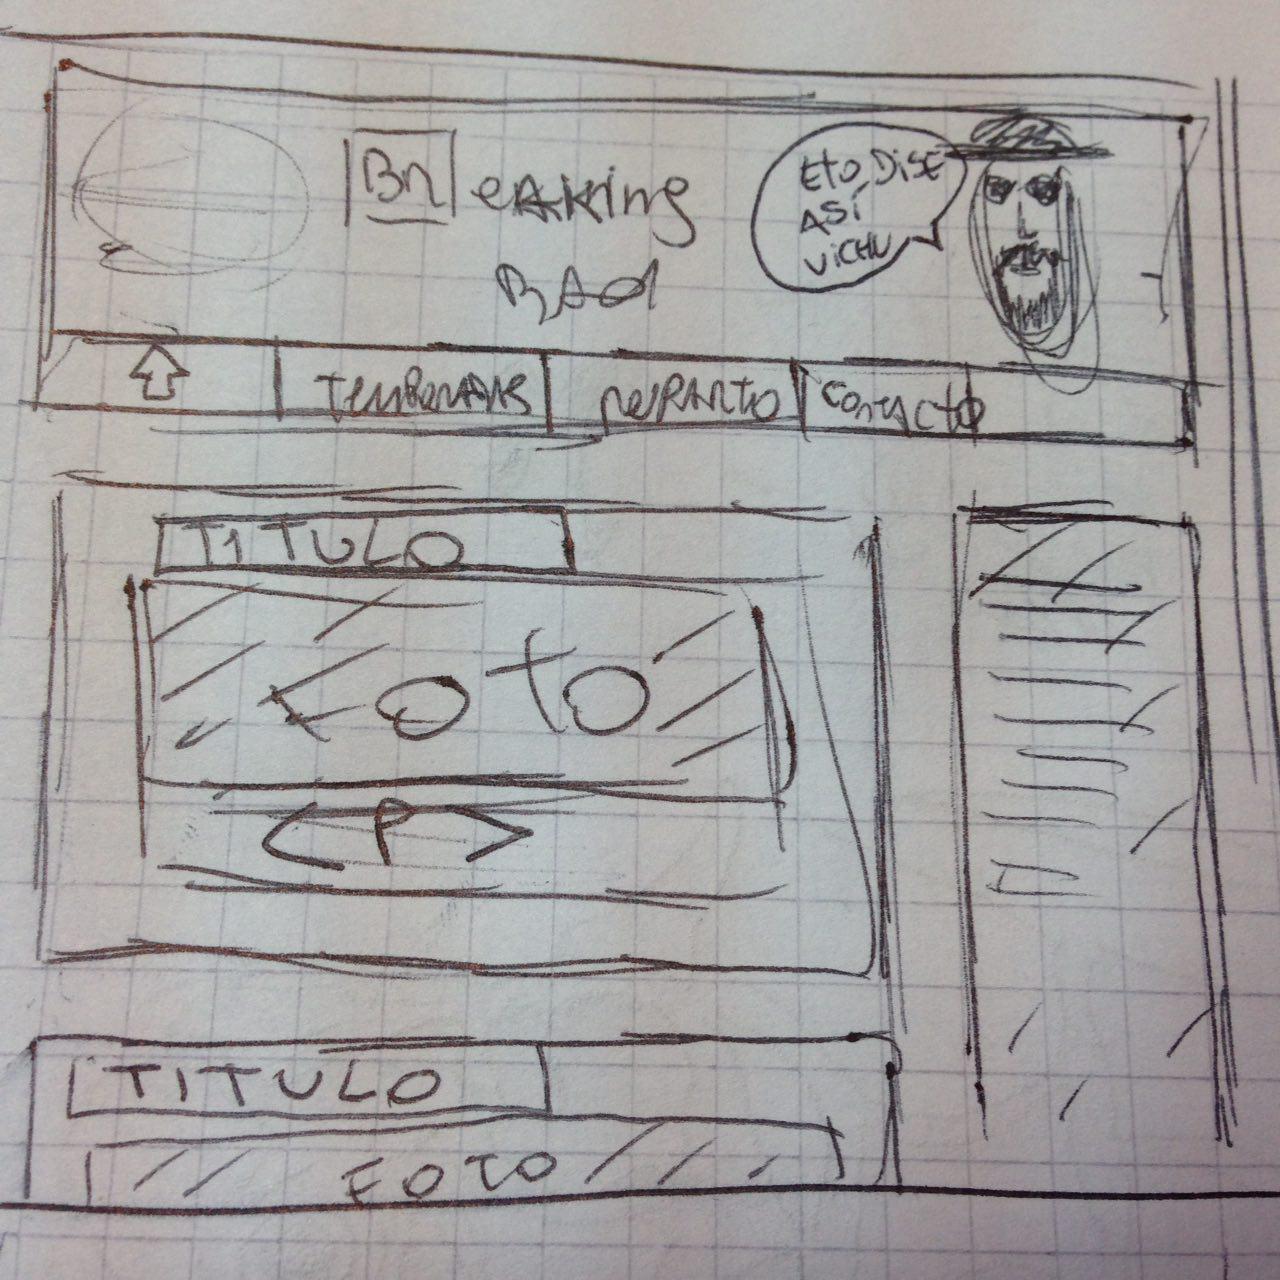 Breaking
Bad
Eto, Dise
Así
Vichu
Temporadas
Reparto
Contacto
TITULO
Foto
<P>
TITULO
FOTO